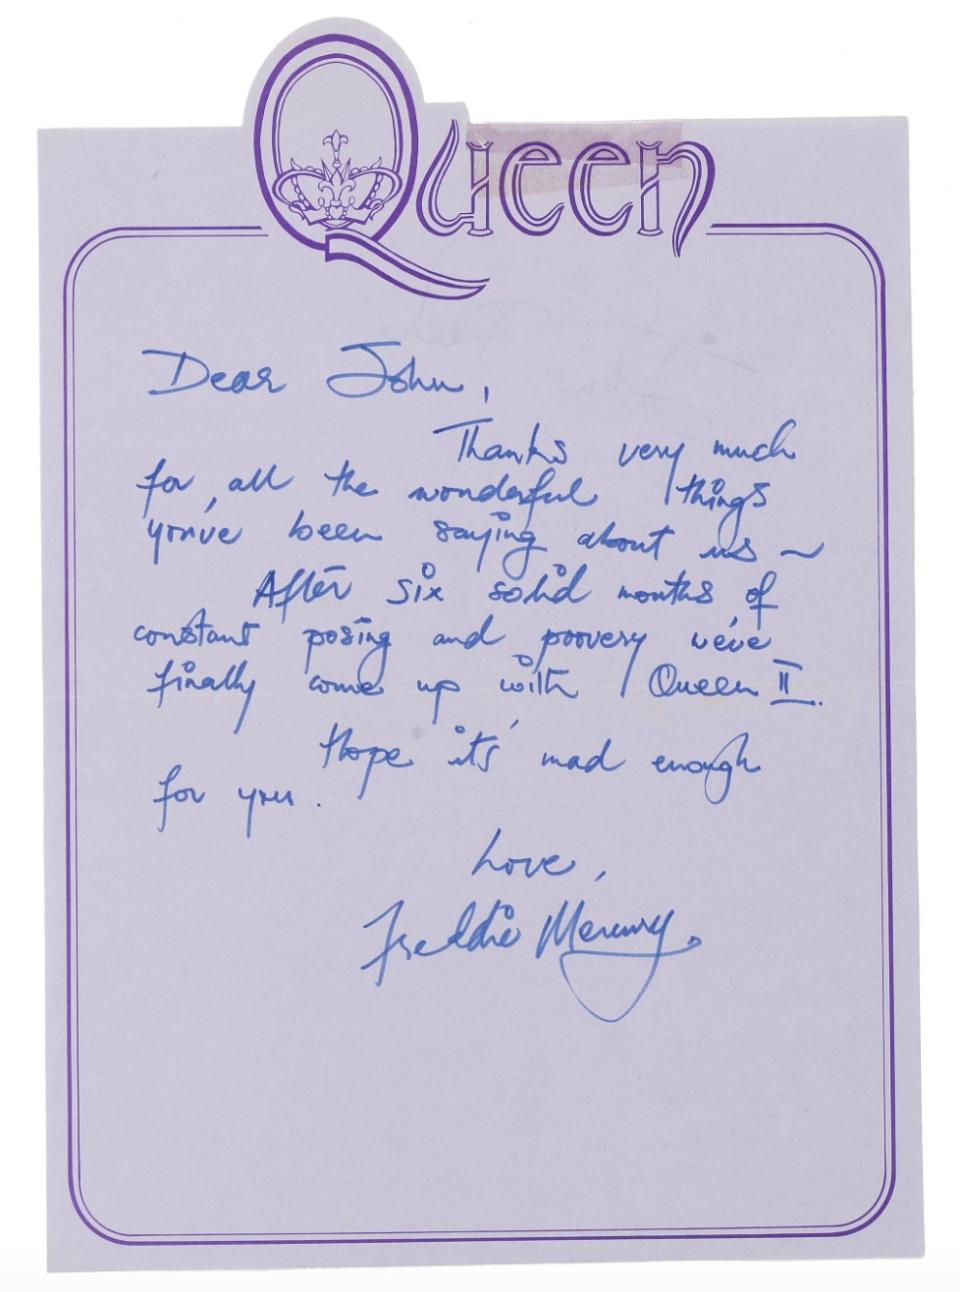 Queen
Dear John,
Thanks very much
for all the wonderful things
you've been saying about us ~
After six solid months of
constant posing and poovery we've
finally come up with Queen II.
Hope it's mad enough
for you.
Love,
Freddie Mercury.